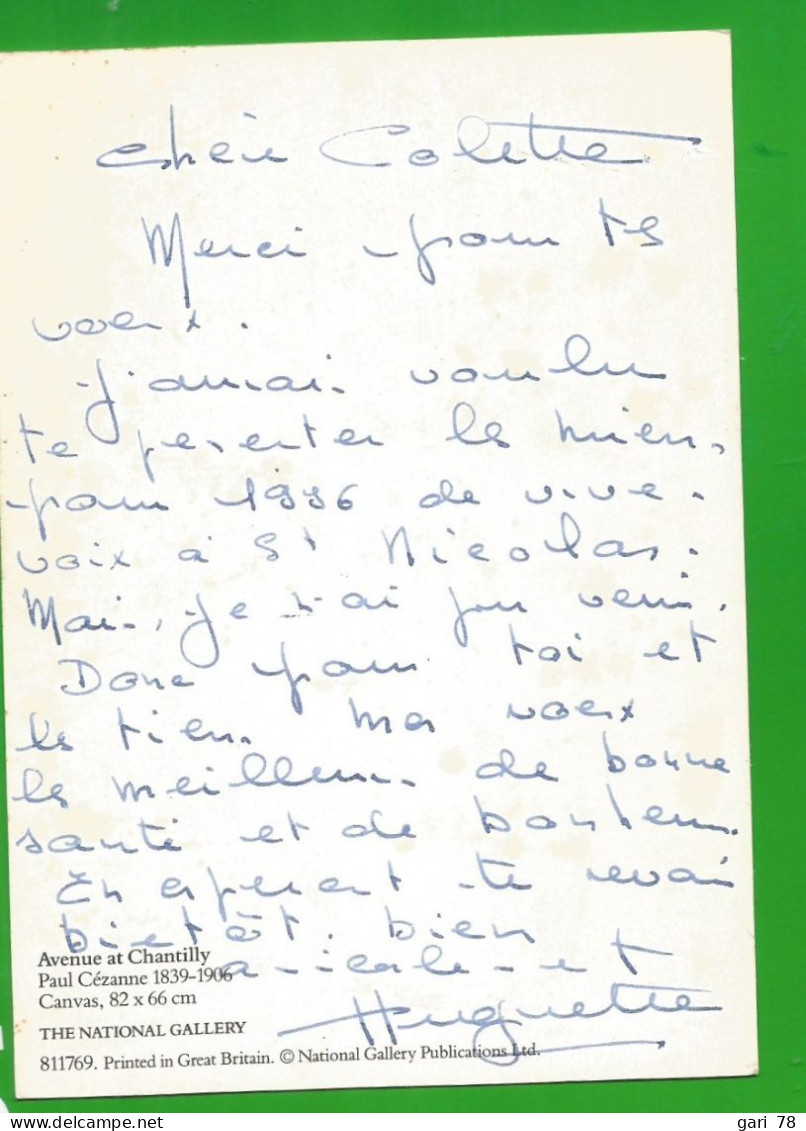 Chère Colette
Merci pour tes
voeux.
J'aurais voulu
te présenter les miens
pour 1996 de vive
voix à St Nicolas.
Mais, je n'ai pu venir.
Donc pour toi et
les tiens mes voeux
les meilleurs de bonne
santé et de bonheur.
En espérant te revoir
bientôt, bien
amicalement
Huguette
Avenue at Chantilly
Paul Cézanne 1839-1906
Canvas, 82 x 66 cm
THE NATIONAL GALLERY
811769. Printed in Great Britain. © National Gallery Publications Ltd.
gari 78